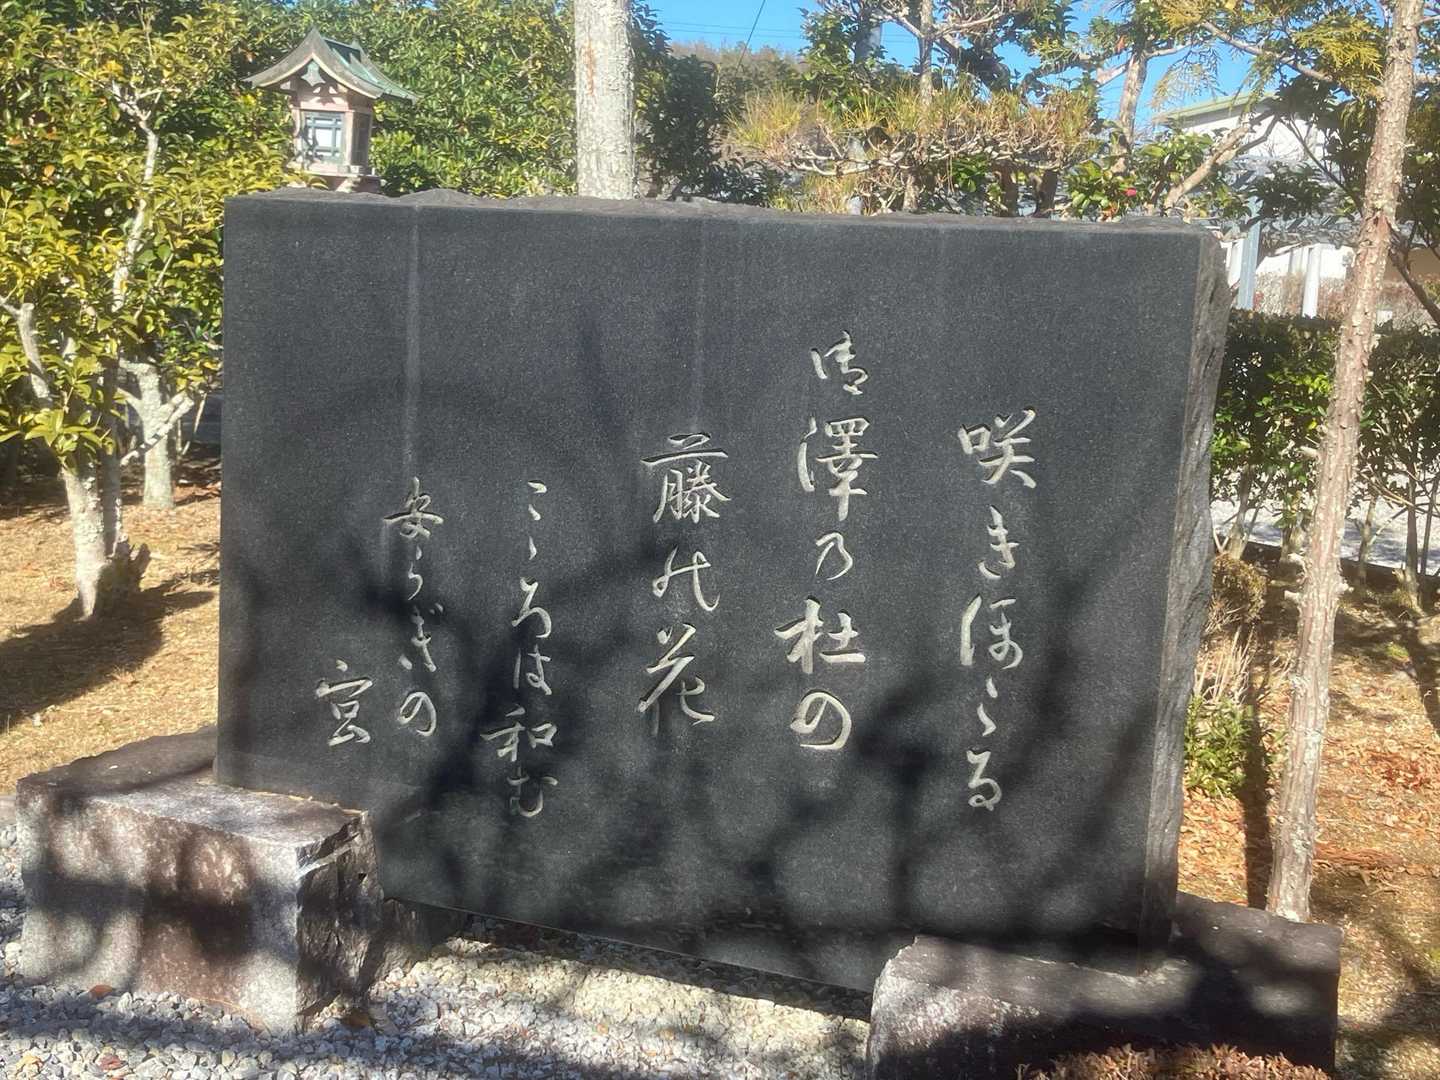 咲きほゝる
清澤乃杜の
藤の花
こゝろは和む
安らぎの
宮